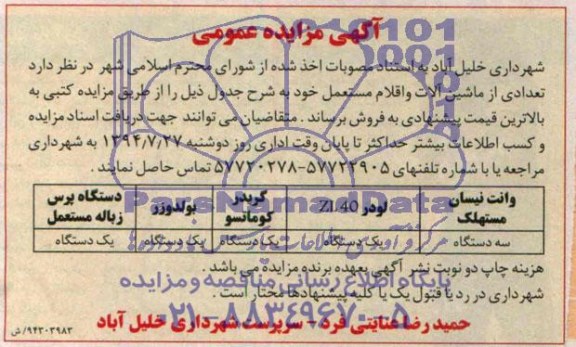 آگهی مزایده عمومی
شهرداری خلیل آباد به استناد مصوبات اخذ شده از شورای محترم اسلامی شهر در نظر دارد
تعدادی از ماشین آلات واقلام مستعمل خود به شرح جدول ذیل را از طریق مزایده کتبی به
بالاترین قیمت پیشنهادی به فروش برساند . متقاضیان می توانند جهت دریافت اسناد مزایده
و کسب اطلاعات بیشتر حداکثر تا پایان وقت اداری روز دوشنبه ۱۳۹۴/۷/۲۷ به شهرداری
مراجعه یا با شماره تلفنهای ۵۷۷۲۲۹۰۵-۵۷۷۲۰۲۷۸ تماس حاصل نمایند .
وانت نیسان مستهلک	لودر ZL40	گریدر کوماتسو	بولدوزر	دستگاه پرس زباله مستعمل
سه دستگاه	یک دستگاه	یک دستگاه	یک دستگاه	یک دستگاه
هزینه چاپ دو نوبت نشر آگهی بعهده برنده مزایده می باشد .
شهرداری در رد یا قبول یک یا کلیه پیشنهادها مختار است .
حمید رضا عنایتی فرد - سرپرست شهرداری خلیل آباد
۹۴۳۰۳۹۸۳/ش
ParsNamadData
پایگاه اطلاع رسانی مناقصه و مزایده
۰۲۱-۸۸۳۴۹۶۷۰-۵